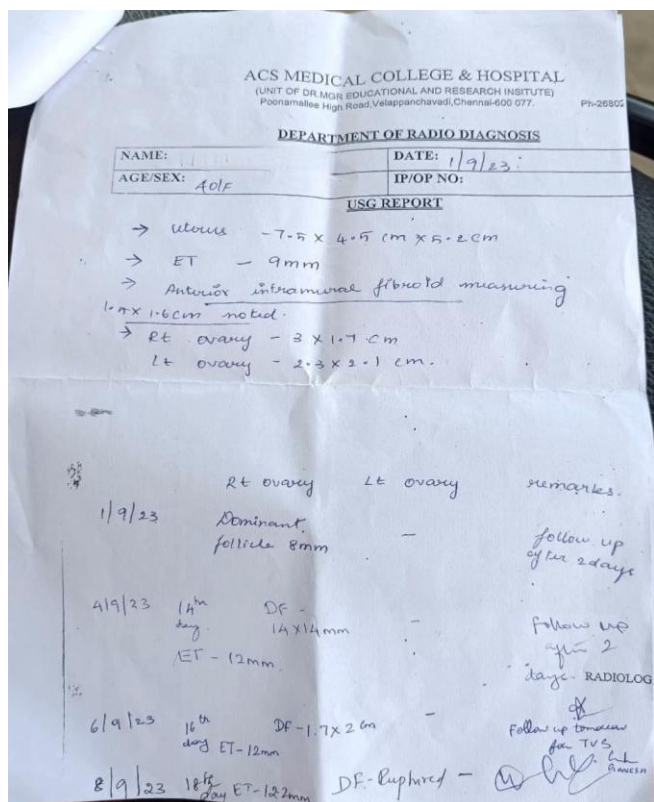 ACS MEDICAL COLLEGE & HOSPITAL
(UNIT OF DR.MGR EDUCATIONAL AND RESEARCH INSITUTE)
Poonamallee High Road,Velappanchavadi,Chennai-600 077. Ph-2680
DEPARTMENT OF RADIO DIAGNOSIS
NAME: DATE: 1/9/23
AGE/SEX: 40/F IP/OP NO:
USG REPORT
→ Uterus - 7.5 x 4.5 cm x 5.2 cm
→ ET - 9mm
→ Anterior intramural fibroid measuring
1.6cm noted.
→ Rt ovary - 3 x 1.7 cm
Lt ovary - 2.3 x 2.1 cm.
Rt ovary Lt ovary remarks.
1/9/23 Dominant - follow up
follicle 8mm after 2days
4/9/23 14th DF - - Follow up
day 14x14mm after 2
ET - 12mm. days. RADIOLOG
6/9/23 16th DF - 1.7 x 2 cm - Follow up tomorrow
day ET - 12mm for TVS
8/9/23 18th day ET - 12.2mm DF - Ruptured -